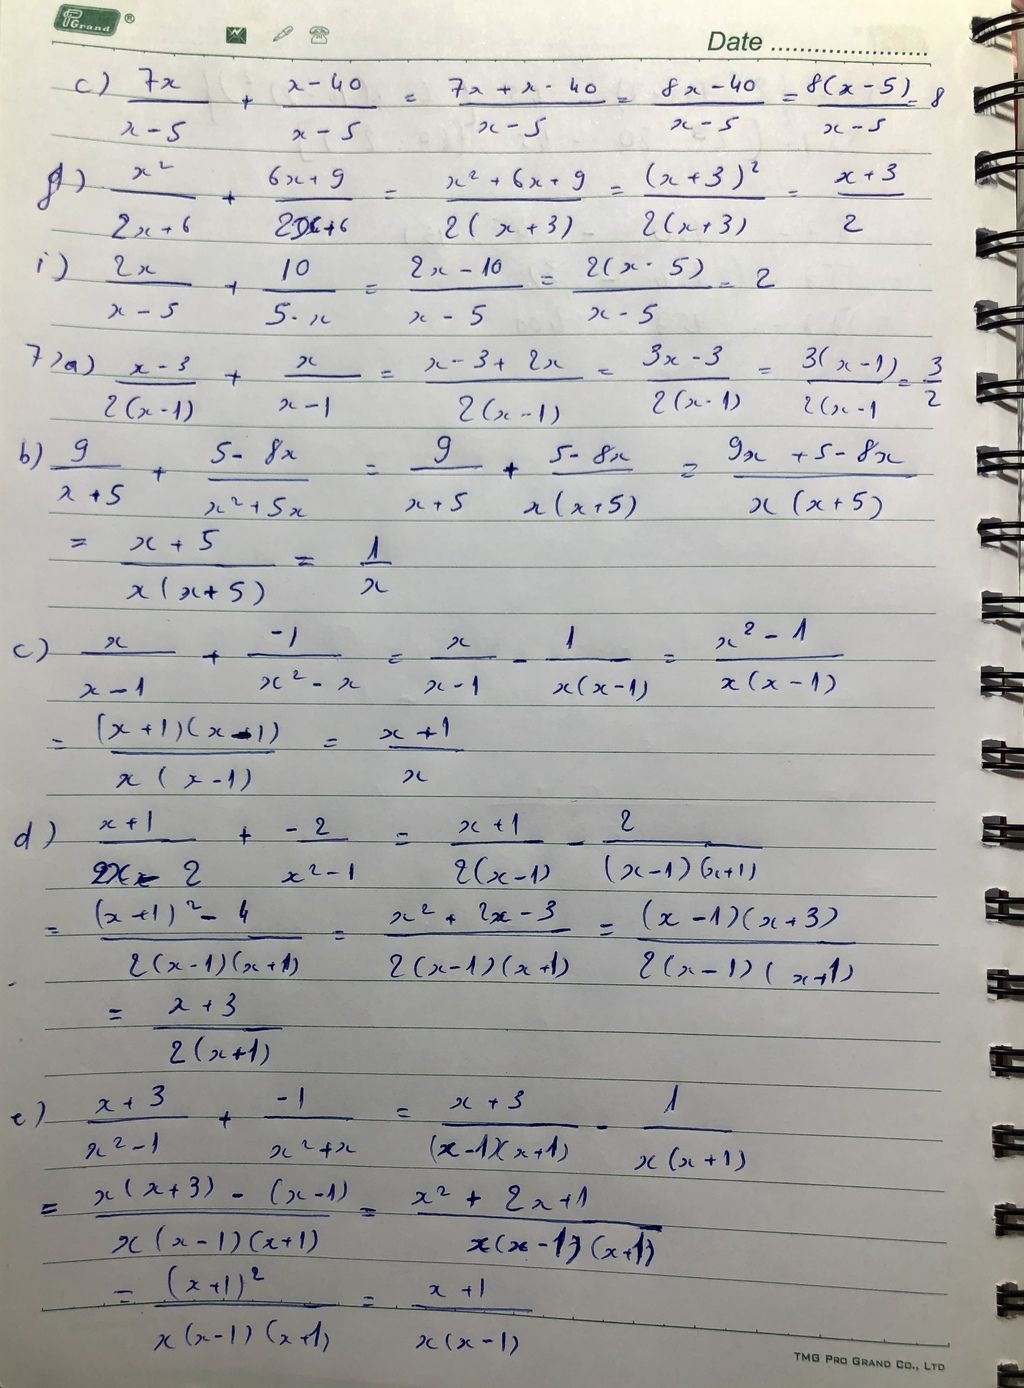 PGrand ®
Date ........................
c) 7x/(x-5) + (x-40)/(x-5) = (7x+x-40)/(x-5) = (8x-40)/(x-5) = 8(x-5)/(x-5) = 8
g) x²/(2x+6) + (6x+9)/(2x+6) = (x²+6x+9)/(2(x+3)) = (x+3)²/(2(x+3)) = (x+3)/2
i) 2x/(x-5) + 10/(5-x) = (2x-10)/(x-5) = 2(x-5)/(x-5) = 2
7>a) (x-3)/(2(x-1)) + x/(x-1) = (x-3+2x)/(2(x-1)) = (3x-3)/(2(x-1)) = 3(x-1)/(2(x-1 = 3/2
b) 9/(x+5) + (5-8x)/(x²+5x) = 9/(x+5) + (5-8x)/(x(x+5)) = (9x+5-8x)/(x(x+5))
= (x+5)/(x(x+5)) = 1/x
c) x/(x-1) + -1/(x²-x) = x/(x-1) - 1/(x(x-1)) = (x²-1)/(x(x-1))
= (x+1)(x-1)/(x(x-1)) = (x+1)/x
d) (x+1)/(2x-2) + -2/(x²-1) = (x+1)/(2(x-1)) - 2/((x-1)(x+1))
= ((x+1)²-4)/(2(x-1)(x+1)) = (x²+2x-3)/(2(x-1)(x+1)) = (x-1)(x+3)/(2(x-1)(x+1))
= (x+3)/(2(x+1))
e) (x+3)/(x²-1) + -1/(x²+x) = (x+3)/((x-1)(x+1)) - 1/(x(x+1))
= (x(x+3)-(x-1))/(x(x-1)(x+1)) = (x²+2x+1)/(x(x-1)(x+1))
= (x+1)²/(x(x-1)(x+1)) = (x+1)/(x(x-1))
TMG PRO GRAND CO., LTD